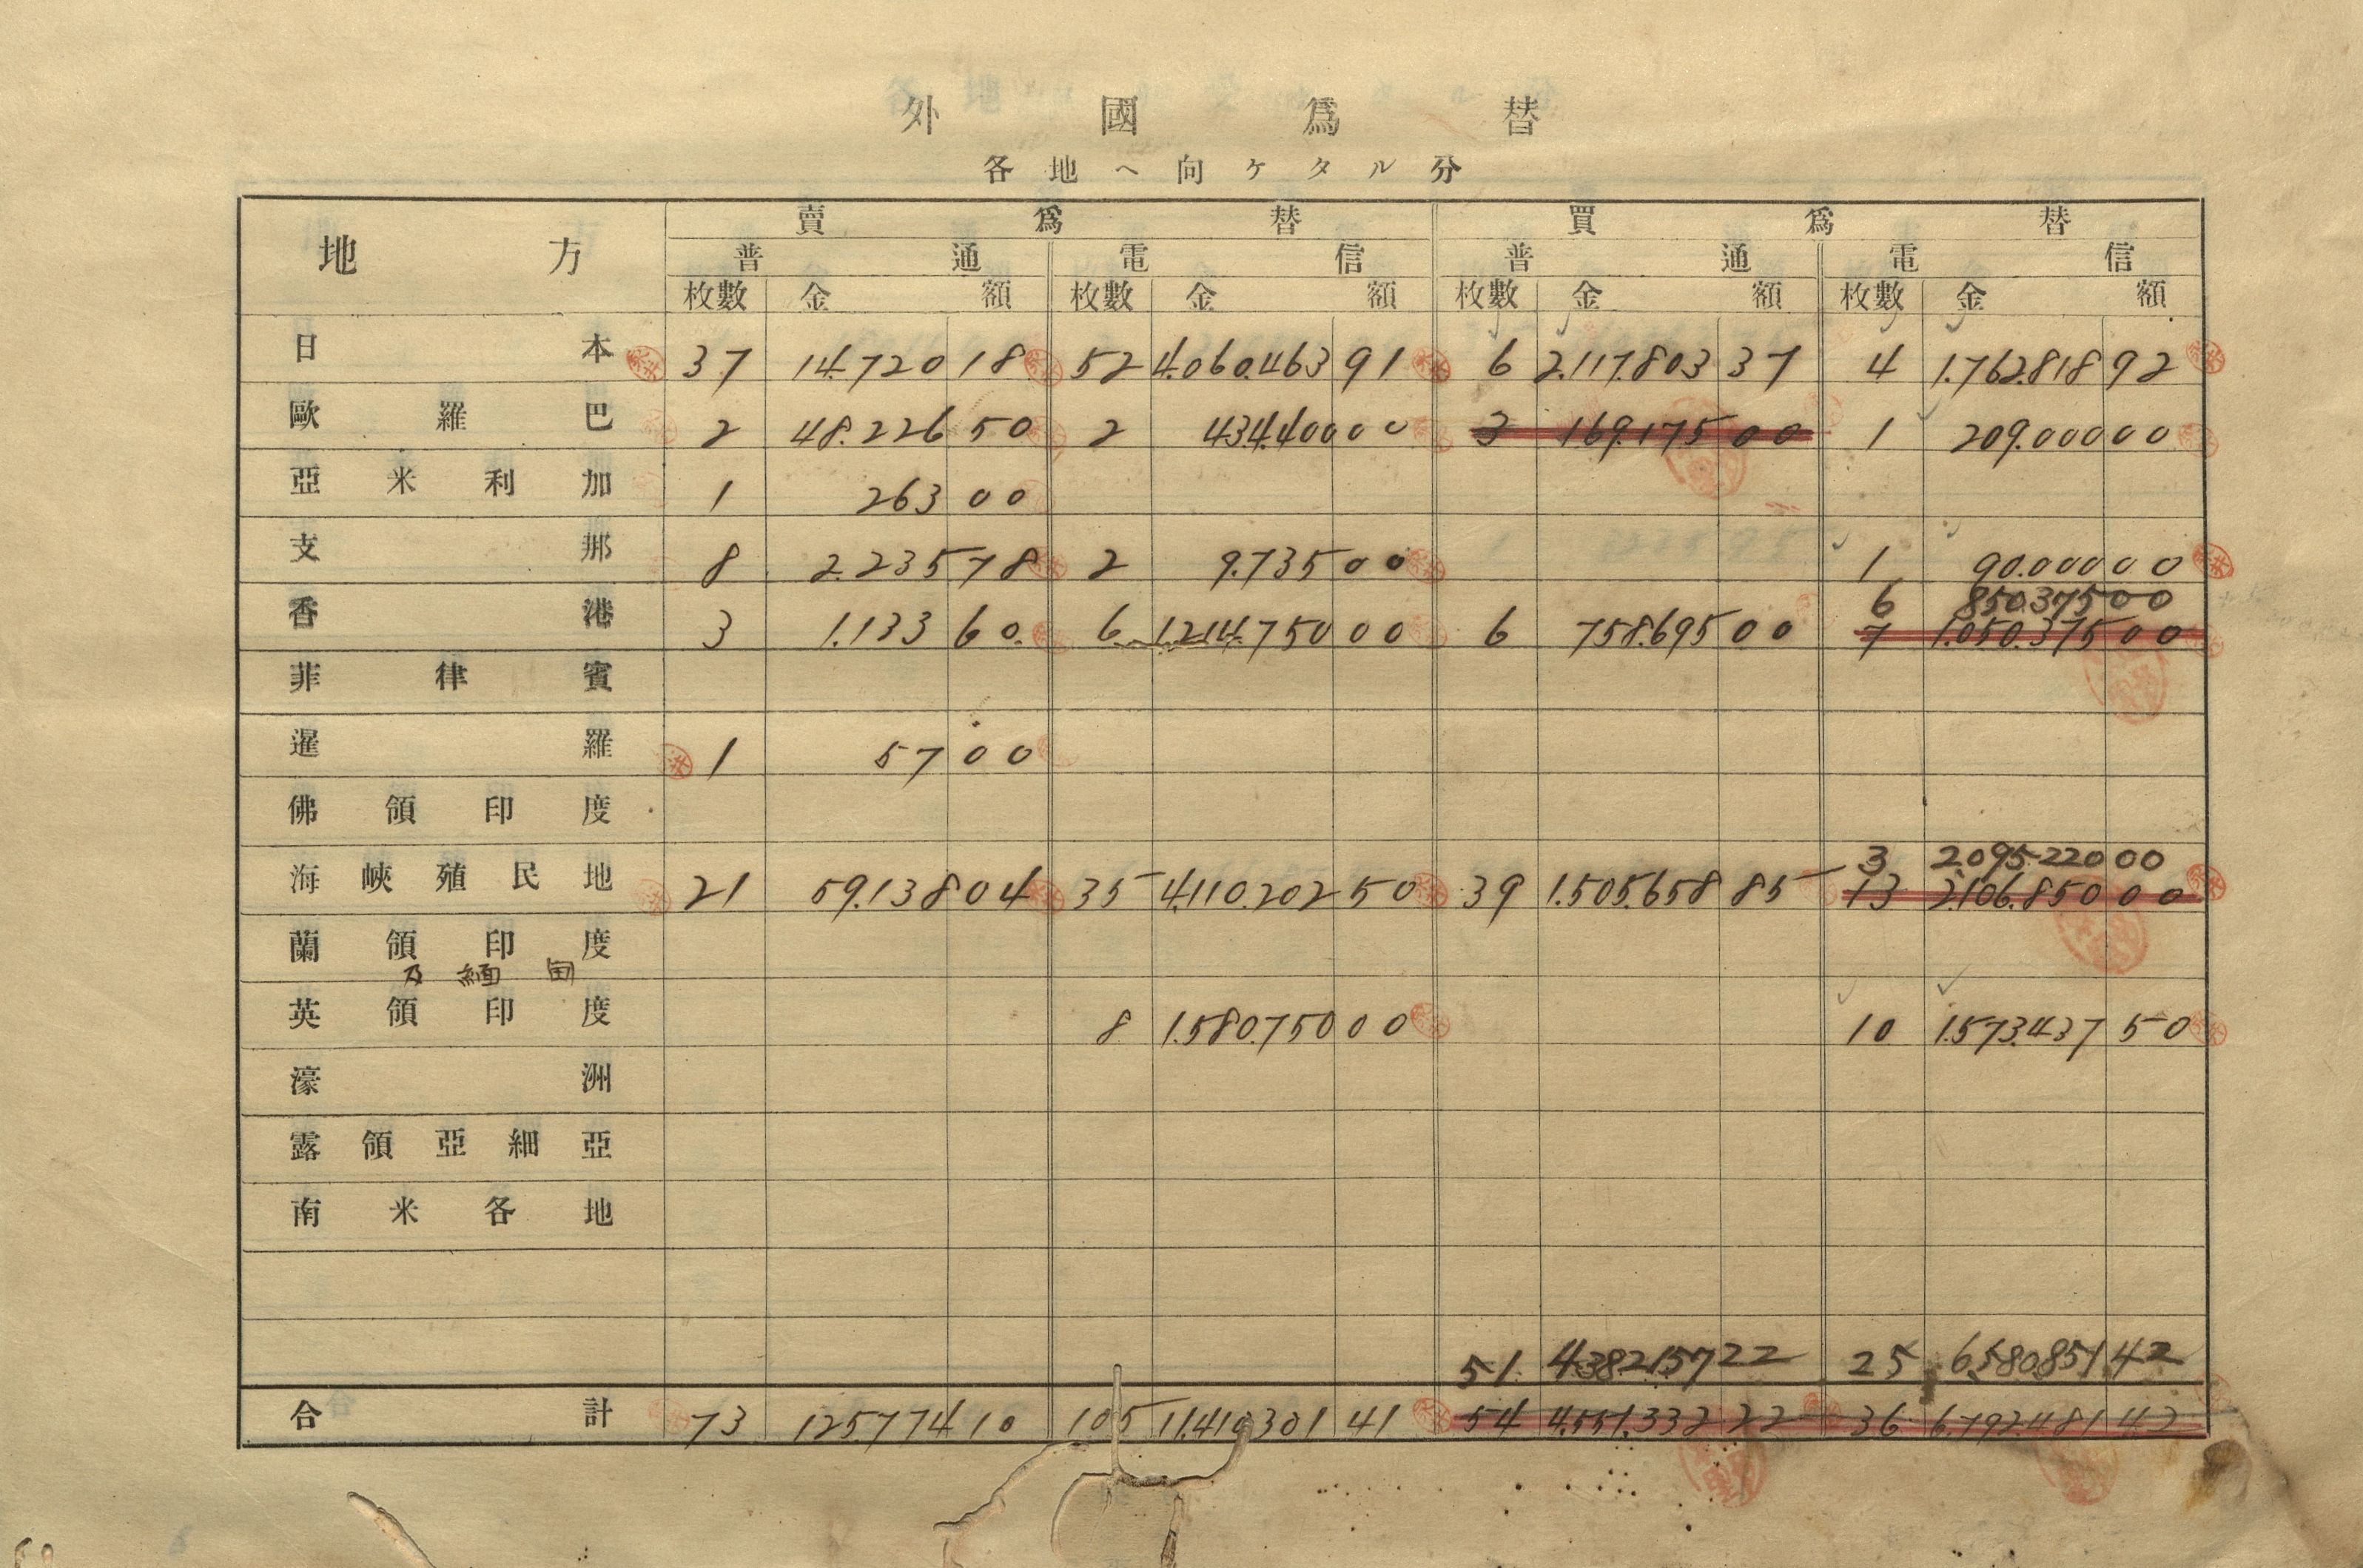 外國爲替
各地ヘ向ケタル分
地方 賣爲替 買爲替
普通 電信 普通 電信
枚數 金額 枚數 金額 枚數 金額 枚數 金額
日本 37 14.720 18 52 4.060.463 91 6 2.117.803 37 4 1.762.818 92
歐羅巴 2 48.226 50 2 434.400 00 3 169.175 00 1 209.000 00
亞米利加 1 263 00
支那 8 2.235 78 2 9.735 00 1 90.000 00
6 850.375 00
香港 3 1.133 60 6 1.214.750 00 6 758.695 00 7 1.050.375 00
菲律賓
暹羅 1 57 00
佛領印度
3 2.095.220 00
海峽殖民地 21 59.138 04 35 4.110.202 50 39 1.505.658 85 13 2.106.850 00
蘭領印度
及緬甸
英領印度 8 1.580.750 00 10 1.573.437 50
濠洲
露領亞細亞
南米各地
51 4.382.157 22 25 6.580.851 42
合計 73 125774 10 105 11.410301 41 54 4.551.332 22 36 6.792.481 42